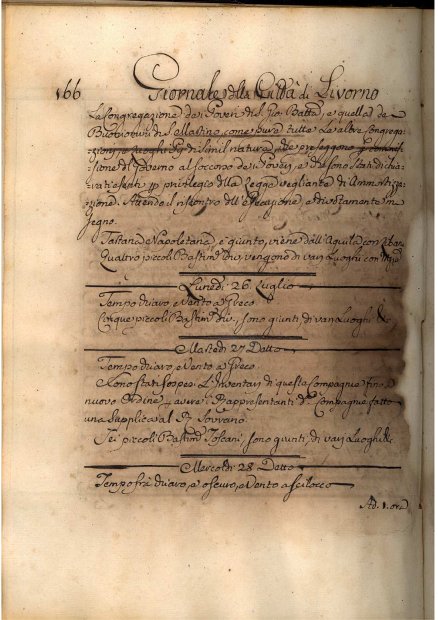 166 Giornale della Città di Livorno
La Congregazione de Poveri di S. Gio. Batta, e quella de
Buonomini di S. Martino, come pure tutte le altre Congrega
di simil natura
sione di Governo al soccorso de Poveri, e che sono stati dichia
rati esenti privilegio della Legge vegliante di Ammortizza
zione. Attende il riscontro dell'esecuzione, e divotamente m'in
segno.
Tartana Napoletana è giunto, viene dall'Aquila con
Quattro piccoli Bastim.ti div. vengono di varj Luoghi con
Lunedì 26. Luglio
Tempo chiaro, e Vento a Greco
Cinque piccoli Bastim.ti div. sono giunti di varj Luoghi &c
Martedì 27 Detto
Tempo chiaro, e Vento a Greco.
Sono stati sospesi L'Inventarj di queste Compagnie fino a
nuovo Ordine, avere i Rappresentanti d.e Compagnie fatto
una Supplica al R. Sovrano.
Sei piccoli Bastim.ti Toscani, sono giunti, di varj Luoghi &c
Mercoldì 28 Detto
Tempo frà chiaro, e oscuro, e Vento a Scilocco
Ad. 1. ora